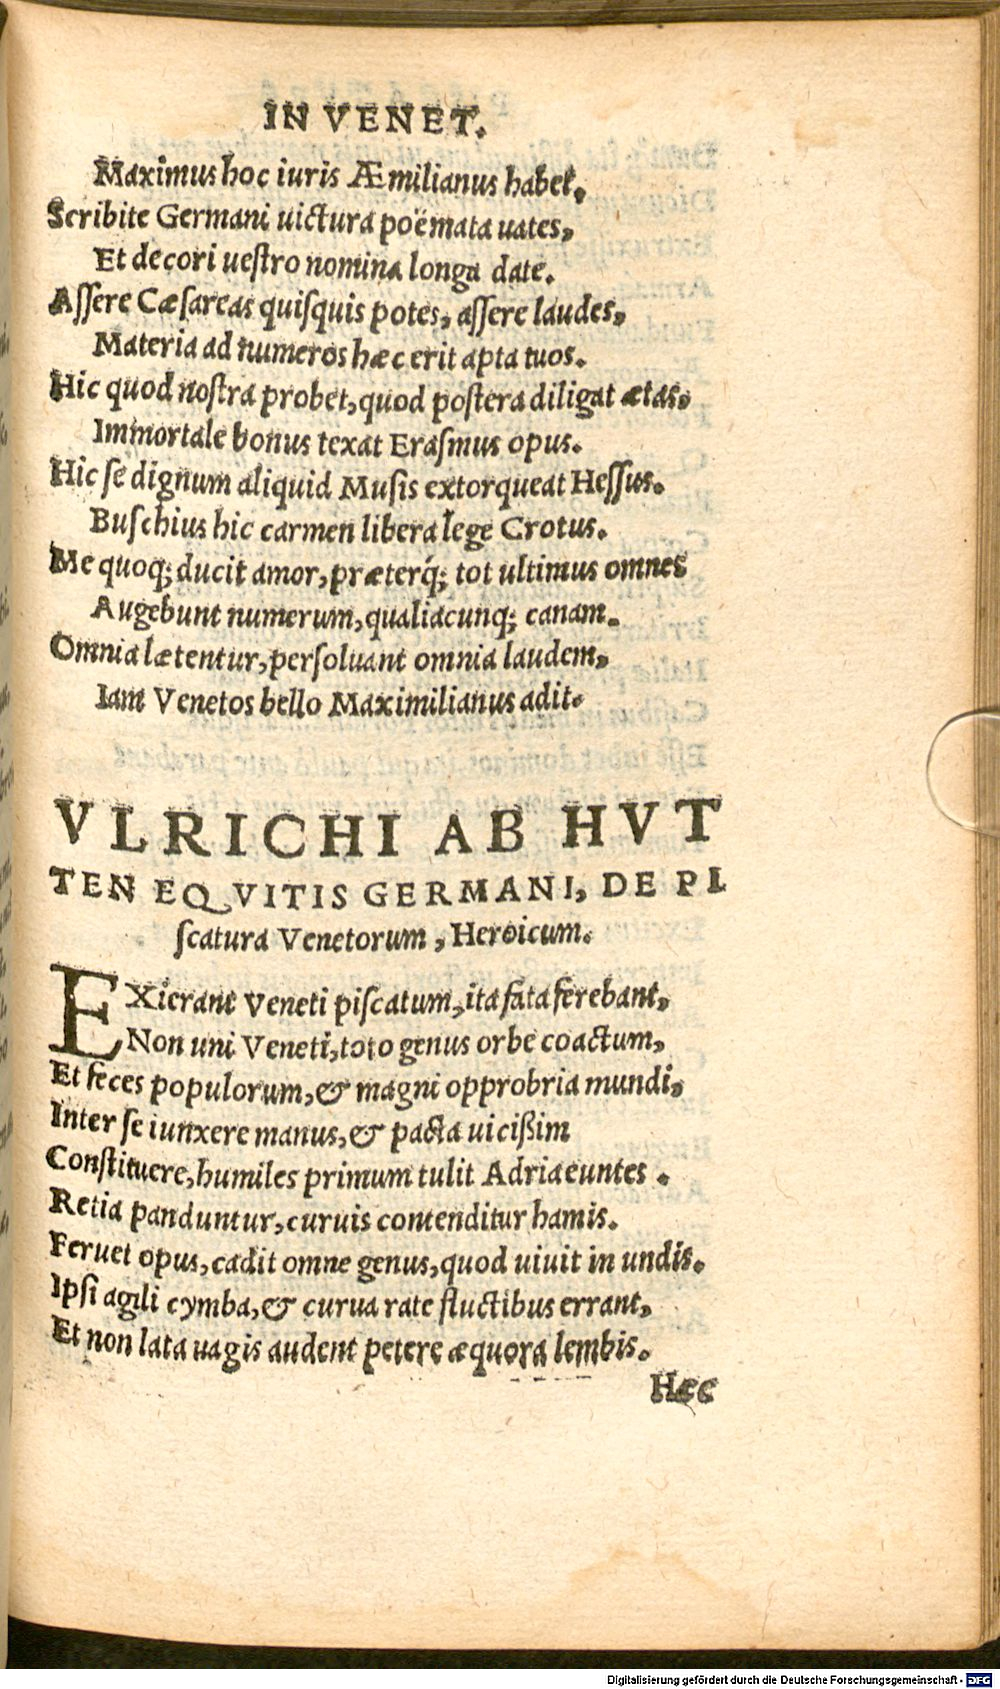 IN VENET.
Maximus hoc iuris Æmilianus habet.
Scribite Germani uictura poëmata uates,
Et decori ueſtro nomina longa date.
Aſſere Cæſareas quiſquis potes, aſſere laudes,
Materia ad numeros hæc erit apta tuos.
Hic quod noſtra probet, quod poſtera diligat ætas,
Immortale bonus texat Eraſmus opus.
Hic ſe dignum aliquid Muſis extorqueat Heſſus.
Buſchius hic carmen libera lege Crotus.
Me quoq; ducit amor, præterq́; tot ultimus omnes
Augebunt numerum, qualiacunq; canam.
Omnia lætentur, perſoluant omnia laudem,
Iam Venetos bello Maximilianus adit.
VLRICHI AB HVT
TEN EQVITIS GERMANI, DE PI
ſcatura Venetorum, Heroicum.
EXierant Veneti piſcatum, ita fata ferebant,
Non uni Veneti, toto genus orbe coactum,
Et feces populorum, & magni opprobria mundi,
Inter ſe iunxere manus, & pacta uicißim
Conſtituere, humiles primum tulit Adria euntes.
Retia panduntur, curuis contenditur hamis.
Feruet opus, cadit omne genus, quod uiuit in undis.
Ipſi agili cymba, & curua rate fluctibus errant,
Et non lata uagis audent petere æquora lembis.
Hæc
Digitalisierung gefördert durch die Deutsche Forschungsgemeinschaft - DFG